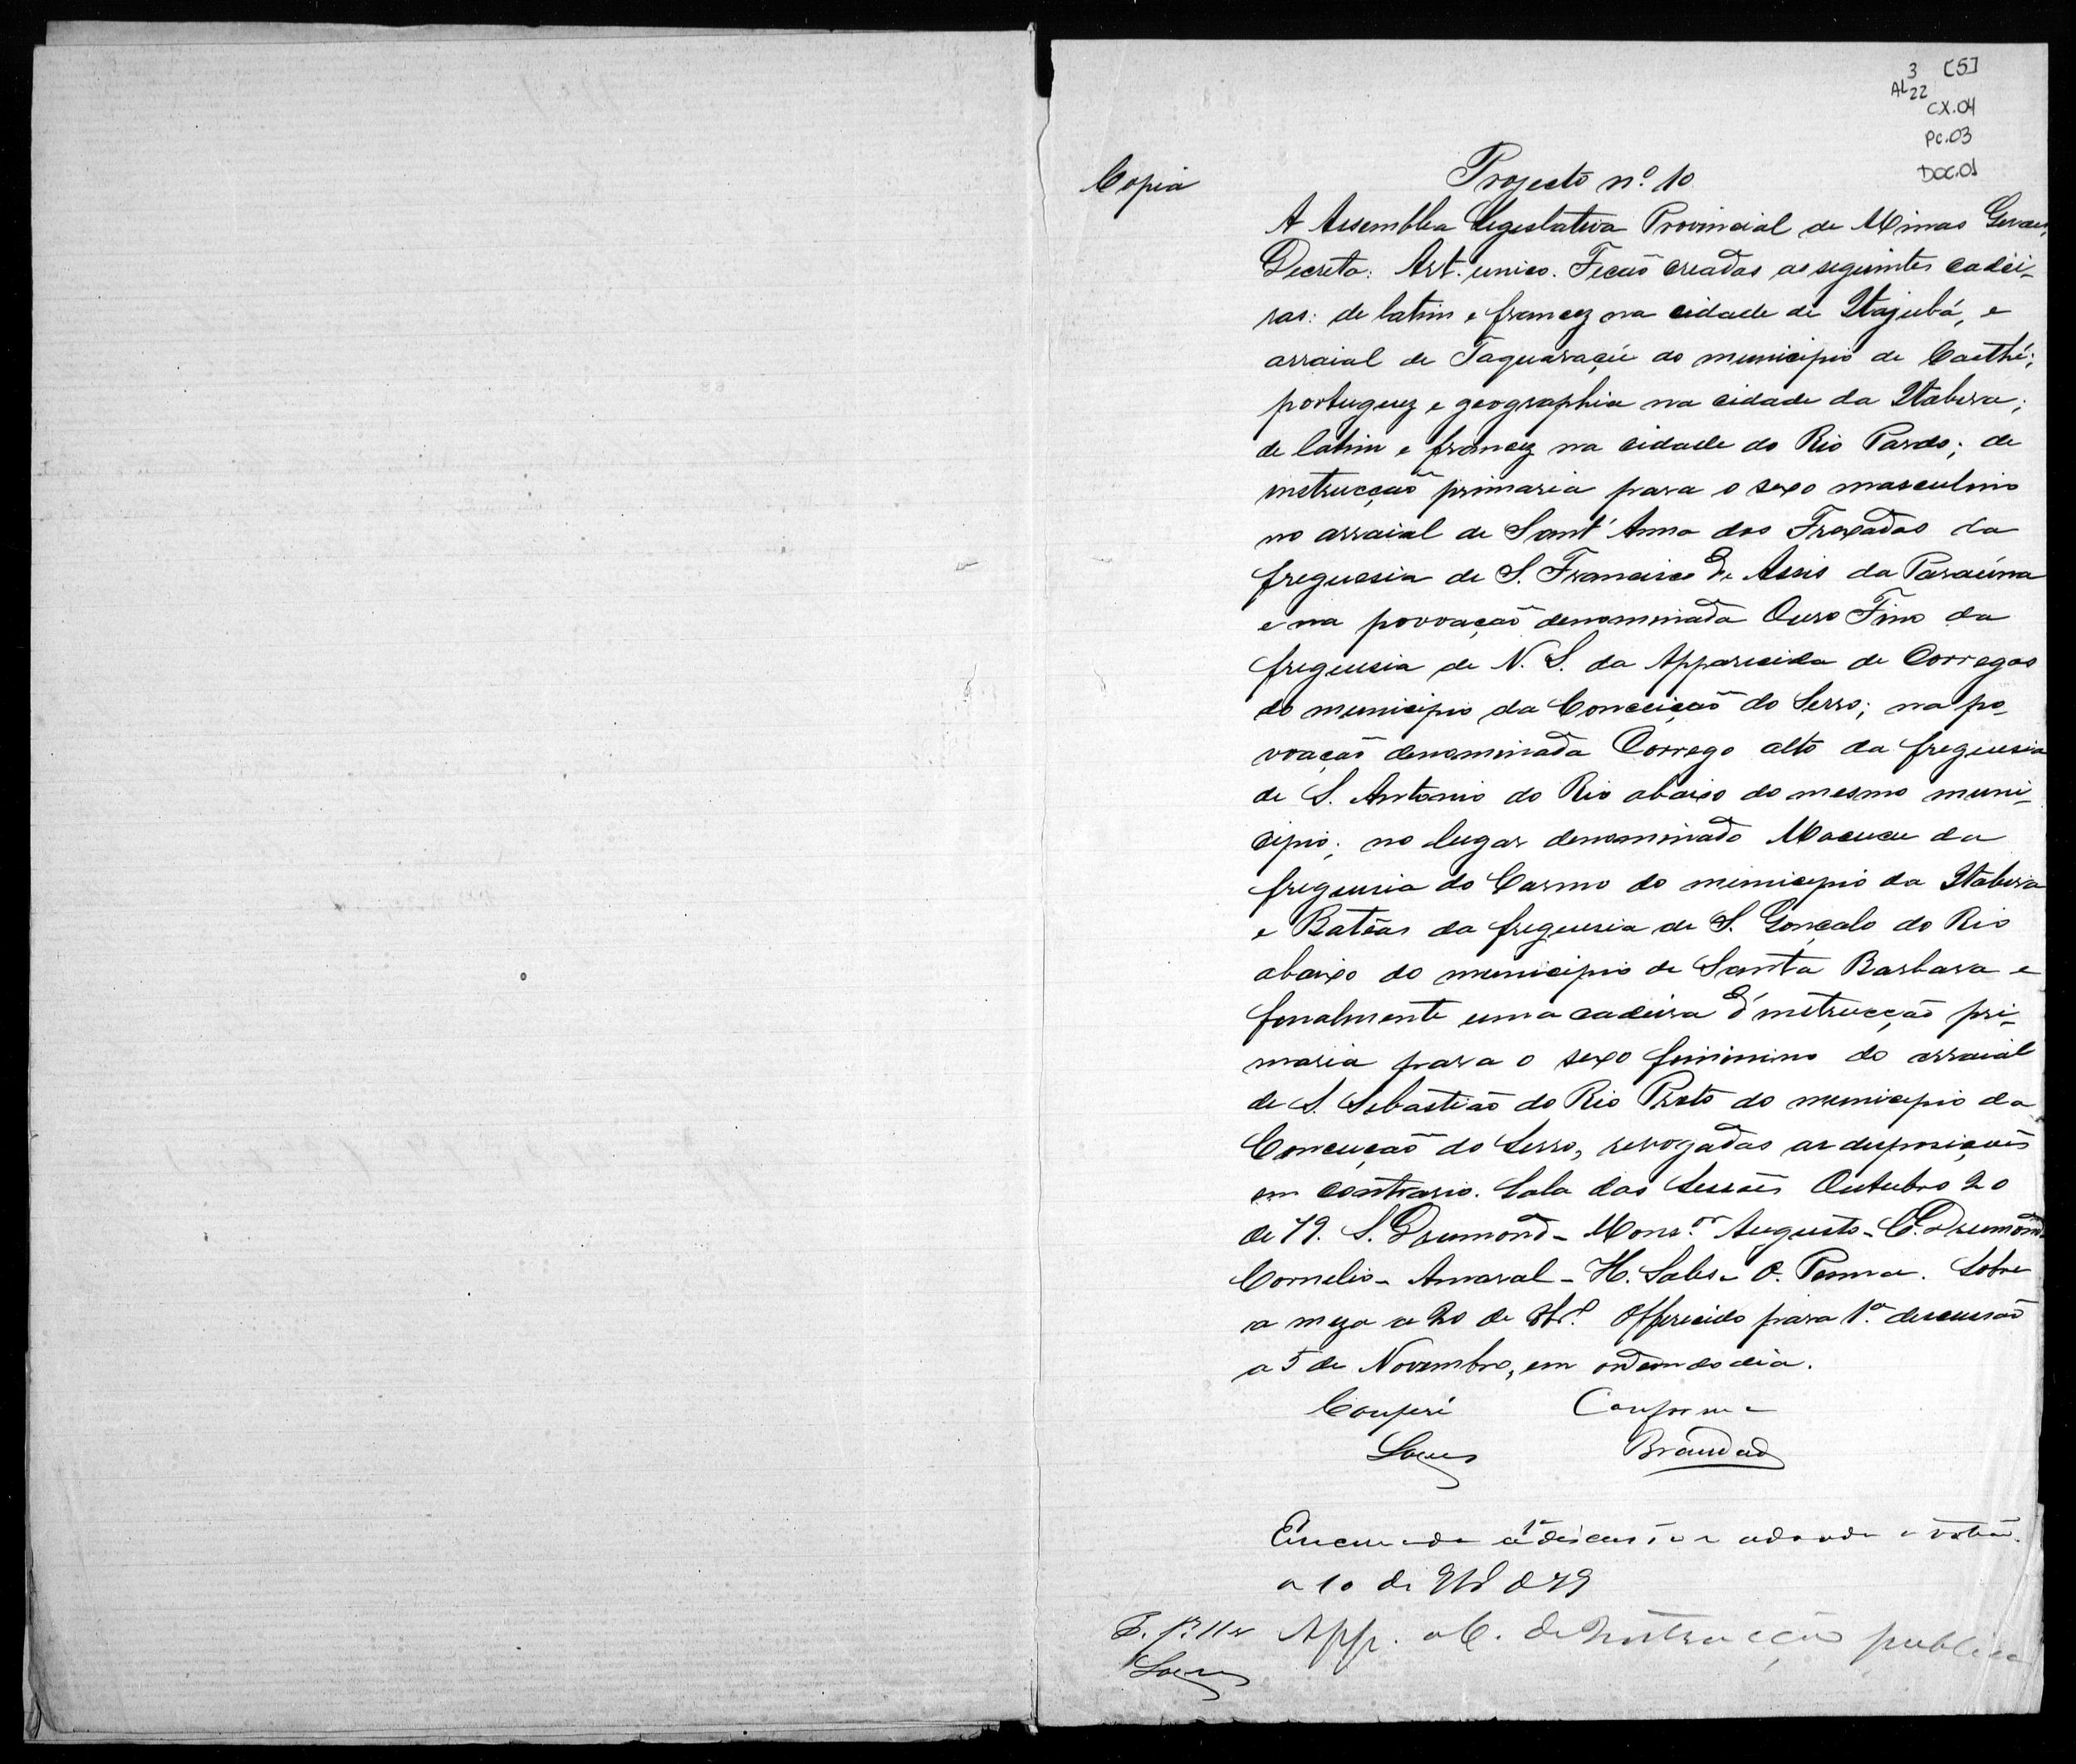 3 [5]
AL 22
CX.04
Pc.03
DOC.01
Copia
Projecto nº. 10
A Assemblea Legislativa Provincial de Minas Geraes,
Decreta: Art. unico. Ficão creadas as seguintes cadei-
ras: de latim e francez na cidade de Itajubá, e
arraial de Taquaraçú do municipio de Caethé;
portuguez e geographia na cidade da Itabira;
de latim e francez na cidade do Rio Pardo; de
instrucção primaria para o sexo masculino
no arraial de Sant'Anna dos Fexados da
freguesia de S. Francisco de Assis da Paraúna
e na povoação denominada Ouro Fino da
freguesia de N. S. da Apparecida de Corregos
do municipio da Conceição do Serro; na po-
voação denominada Corrego alto da freguesia
de S. Antonio do Rio abaixo do mesmo muni-
cipio; no lugar denominado Macuco da
freguesia do Carmo do municipio da Itabira
e Batêas da freguesia de S. Gonçalo do Rio
abaixo do municipio de Santa Barbara e
finalmente uma cadeira d'instrucção pri-
maria para o sexo feminino do arraial
de S. Sebastião do Rio Preto do municipio da
Conceição do Serro, revogadas as disposições
em contrario. Sala das Sessões Outubro 20
de 79. S. Drumond - Monsor. Augusto - C. Drumond
Cornelio - Amaral - H. Sales - O. Penna. Sobre
a meza a 20 de 8bro. Offerecido para 1ª. discussão
a 5 de Novembro, em ordem do dia.
Conferi Conforme
Brandão
Encerrada a 1ª discussão e adiada a votação.
a 10 de 9bro de 79
App. a C. de Instrucção publica